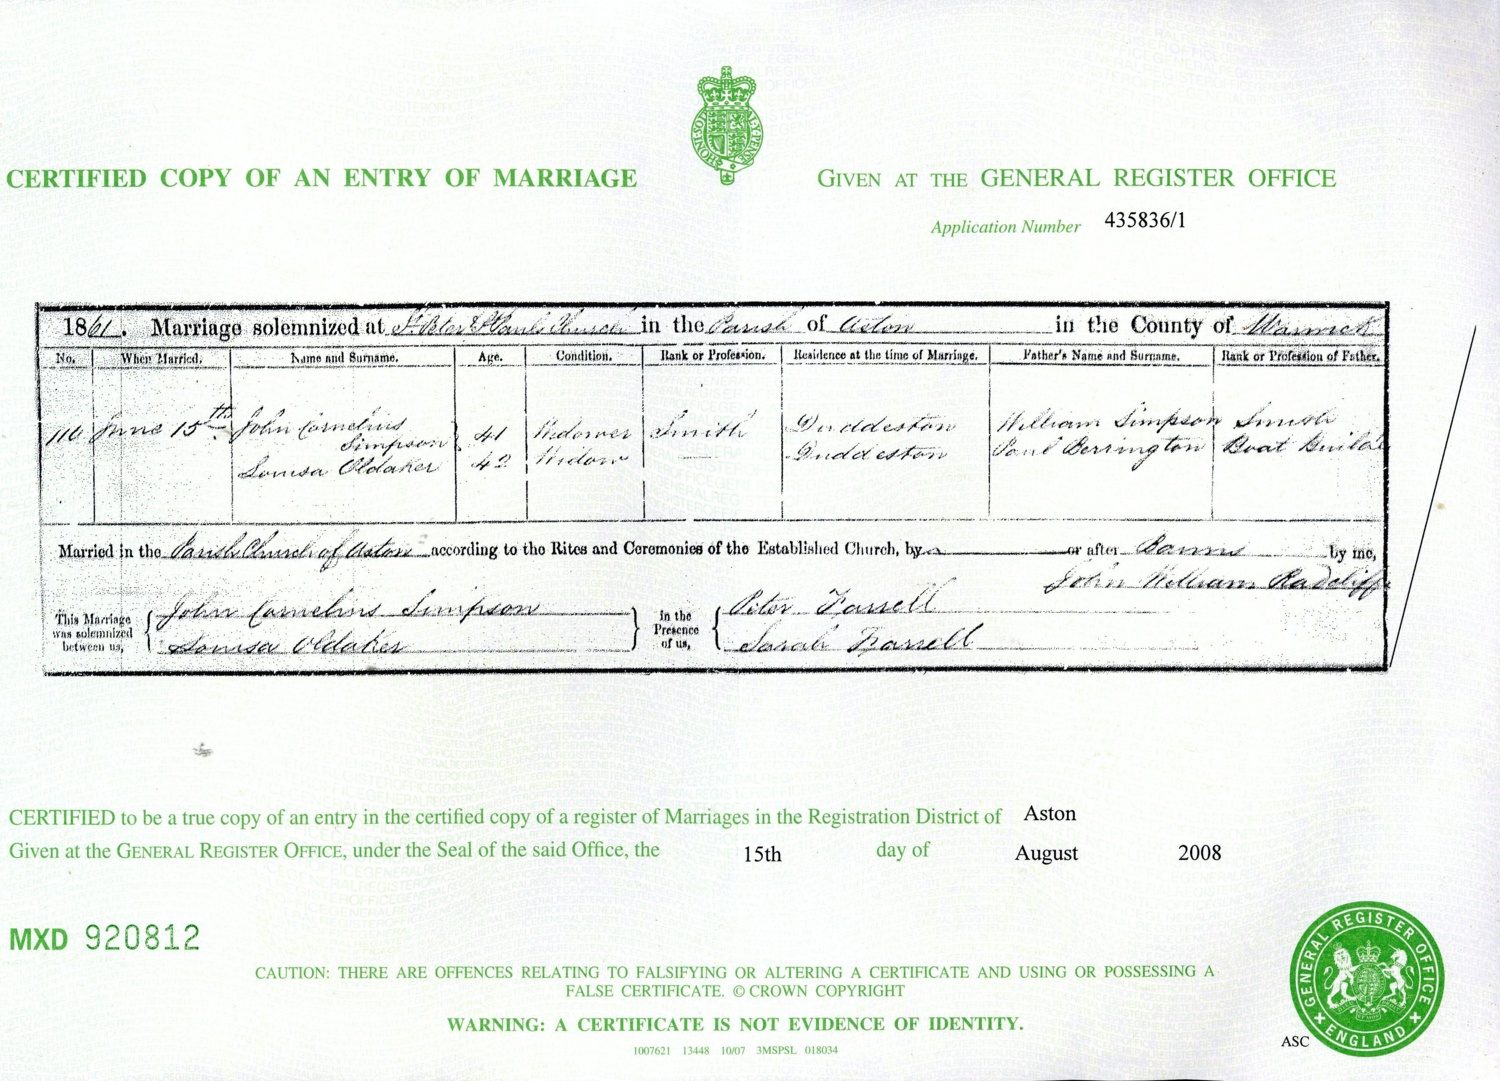 CERTIFIED COPY OF AN ENTRY OF MARRIAGE
GIVEN AT THE GENERAL REGISTER OFFICE
Application Number 435836/1
1861. Marriage solemnized at St Peter & St Paul's Church in the Parish of Aston in the County of Warwick
No. When Married. Name and Surname. Age. Condition. Rank or Profession. Residence at the time of Marriage. Father's Name and Surname. Rank or Profession of Father.
110 June 15th. John Cornelius Simpson 41 Widower Smith Duddeston William Simpson Smith
Louisa Oldaker 42 Widow Duddeston Paul Berrington Boat Builder
Married in the Parish Church of Aston according to the Rites and Ceremonies of the Established Church, by or after Banns by me,
John William Radcliff
This Marriage was solemnized between us, John Cornelius Simpson
Louisa Oldaker
in the Presence of us, Peter Farrell
Sarah Farrell
CERTIFIED to be a true copy of an entry in the certified copy of a register of Marriages in the Registration District of Aston
Given at the GENERAL REGISTER OFFICE, under the Seal of the said Office, the 15th day of August 2008
MXD 920812
CAUTION: THERE ARE OFFENCES RELATING TO FALSIFYING OR ALTERING A CERTIFICATE AND USING OR POSSESSING A
FALSE CERTIFICATE. © CROWN COPYRIGHT
WARNING: A CERTIFICATE IS NOT EVIDENCE OF IDENTITY.
1007621 13448 10/07 3MSPSL 018034
ASC
GENERAL REGISTER OFFICE ENGLAND